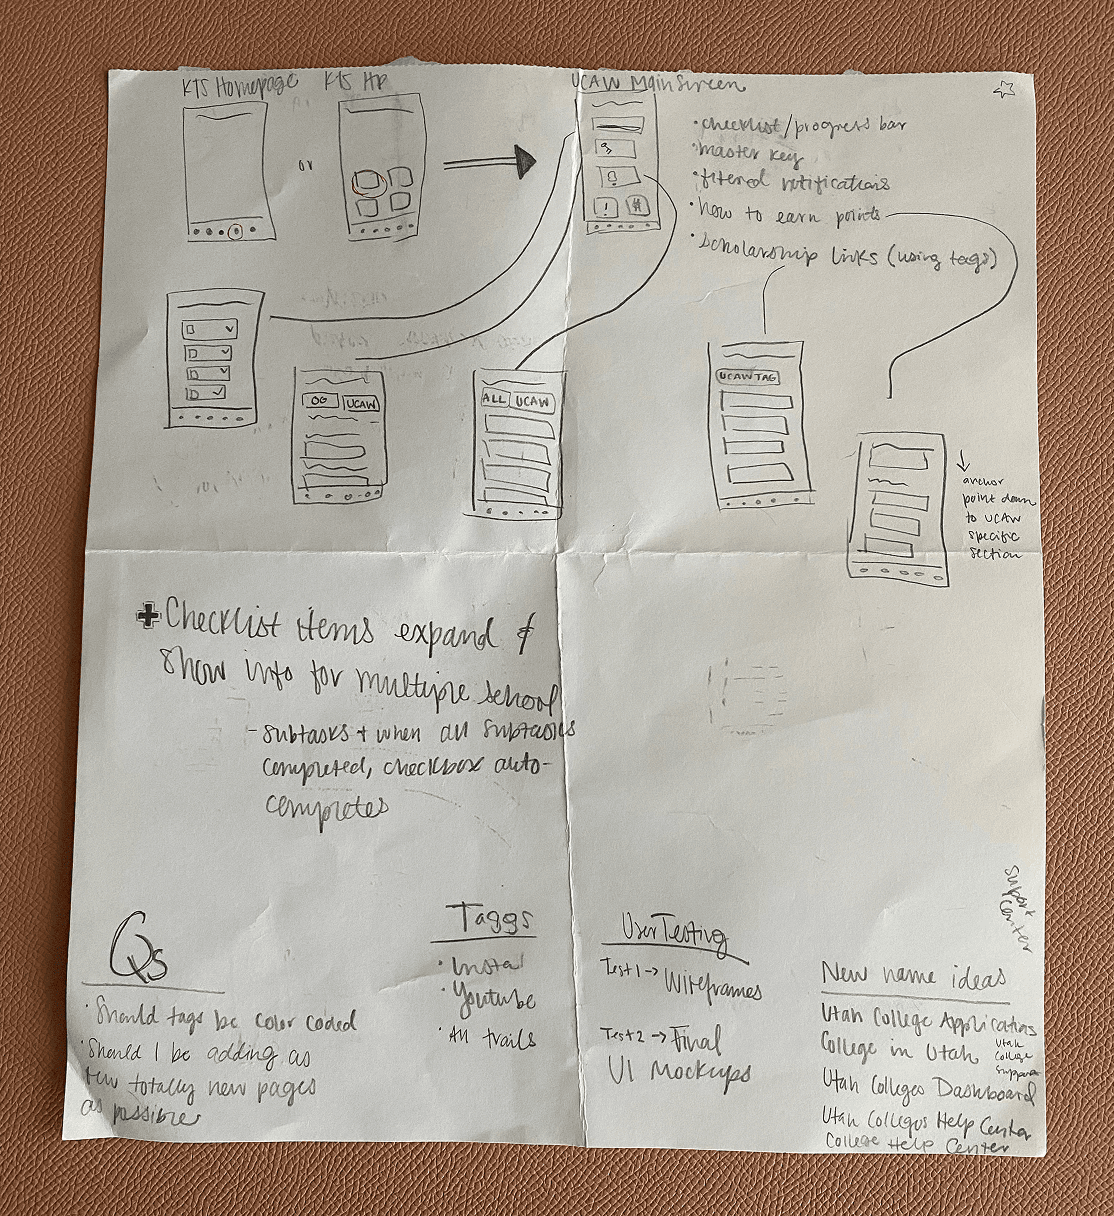 KTS Homepage
KTS HP
UCAW Main Screen
or
• checklist/progress bar
• master key
• filtered notifications
• how to earn points
• scholarship links (using tags)
!
#
OG
UCAW
ALL
UCAW
UCAW TAG
anchor
point down
to UCAW
specific
section
+ Checklist items expand &
show info for multiple school
- subtasks + when all subtasks
completed, checkbox auto-
completes
Qs
• Should tags be color coded
• Should I be adding as
few totally new pages
as possible
Taggs
• Insta
• Youtube
• All trails
User Testing
Test 1 → Wireframes
Test 2 → Final
UI Mockups
support
center
New name ideas
Utah College Applications
College in Utah
Utah
College
Support
Utah Colleges Dashboard
Utah Colleges Help Center
College Help Center